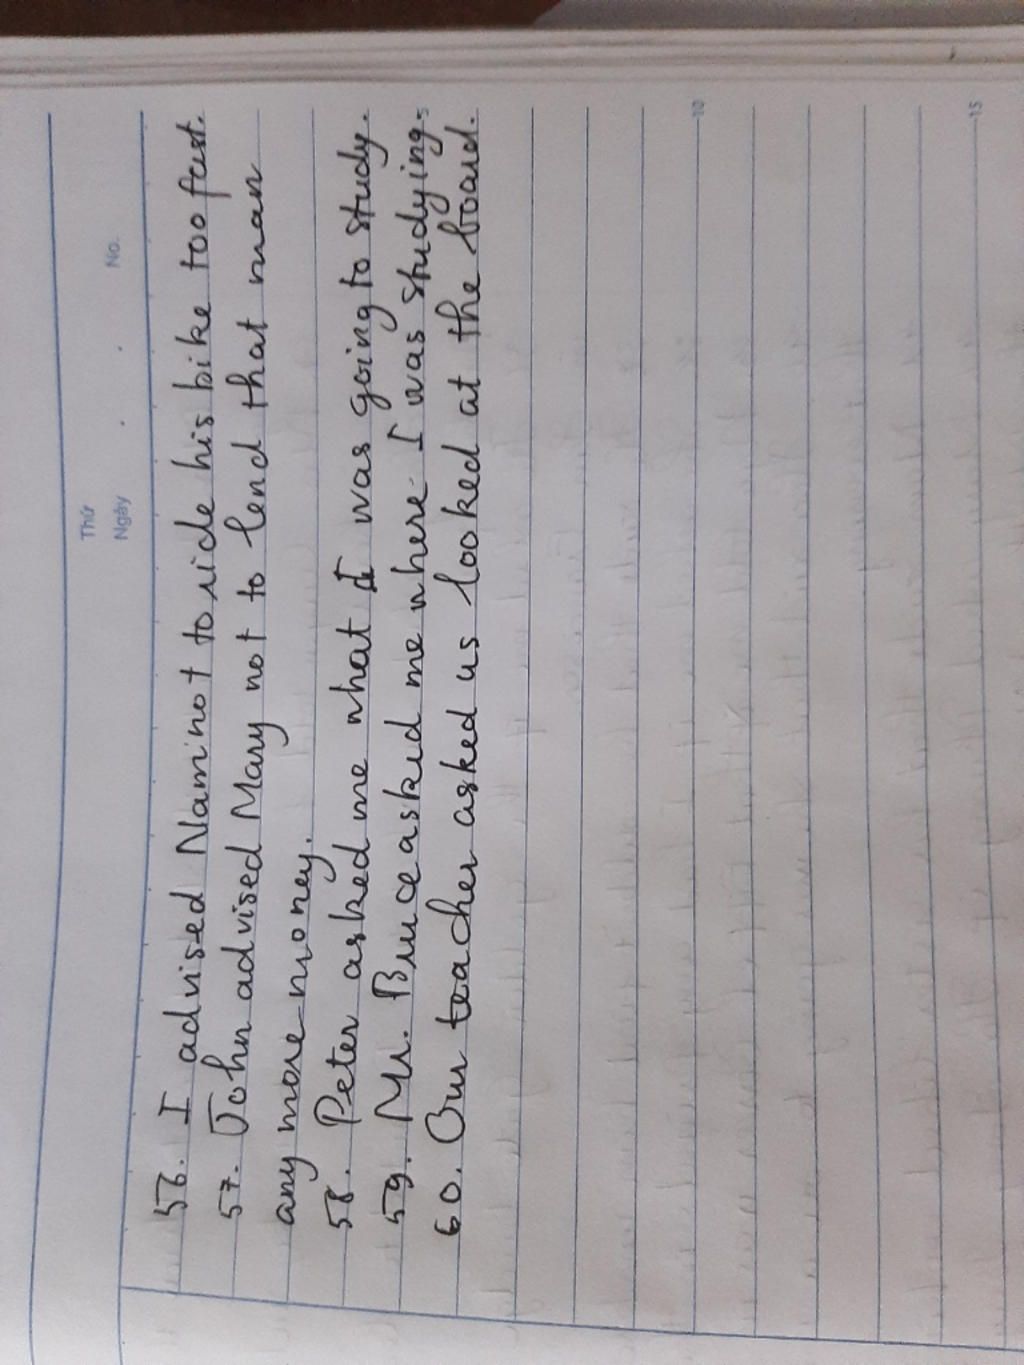 Thứ
Ngày . . No.
56. I advised Nam not to ride his bike too fast.
57. John advised Mary not to lend that man
any more money.
58. Peter asked me what I was going to study.
59. Mr. Bruce asked me where I was studying.
60. Our teacher asked us looked at the board.
5
10
15